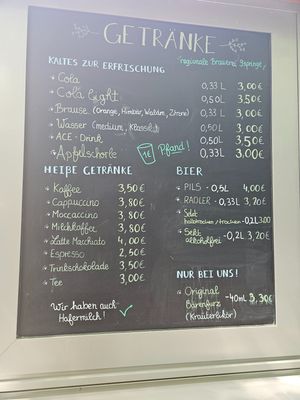 GETRÄNKE
KALTES ZUR ERFRISCHUNG
"regionale Brauerei
Cola 0,33 L 3,00€
Cola Light 0,50L 3,50€
Brause (Orange, Himbeer, Waldm., Zitrone) 0,33 L 3,00€
Wasser (medium, Klassik) 0,50L 3,00€
ACE - Drink 0,50L 3,50€
Apfelschorle 0,33L 3,00€
1€ Pfand!
HEIßE GETRÄNKE
Kaffee 3,50€
Cappuccino 3,80€
Moccaccino 3,80€
Milchkaffee 3,80€
Latte Macchiato 4,00€
Espresso 2,50€
Trinkschokolade 3,50€
Tee 3,00€
Wir haben auch
Hafermilch!
BIER
PILS - 0,5L 4,00€
RADLER - 0,33L 3,20€
Sekt
halbtrocken / trocken - 0,2L 3,00
Sekt
alkoholfrei - 0,2L 3,20€
NUR BEI UNS!
Original
Bärenfurz - 40mL 3,30€
(Kräuterlikör)